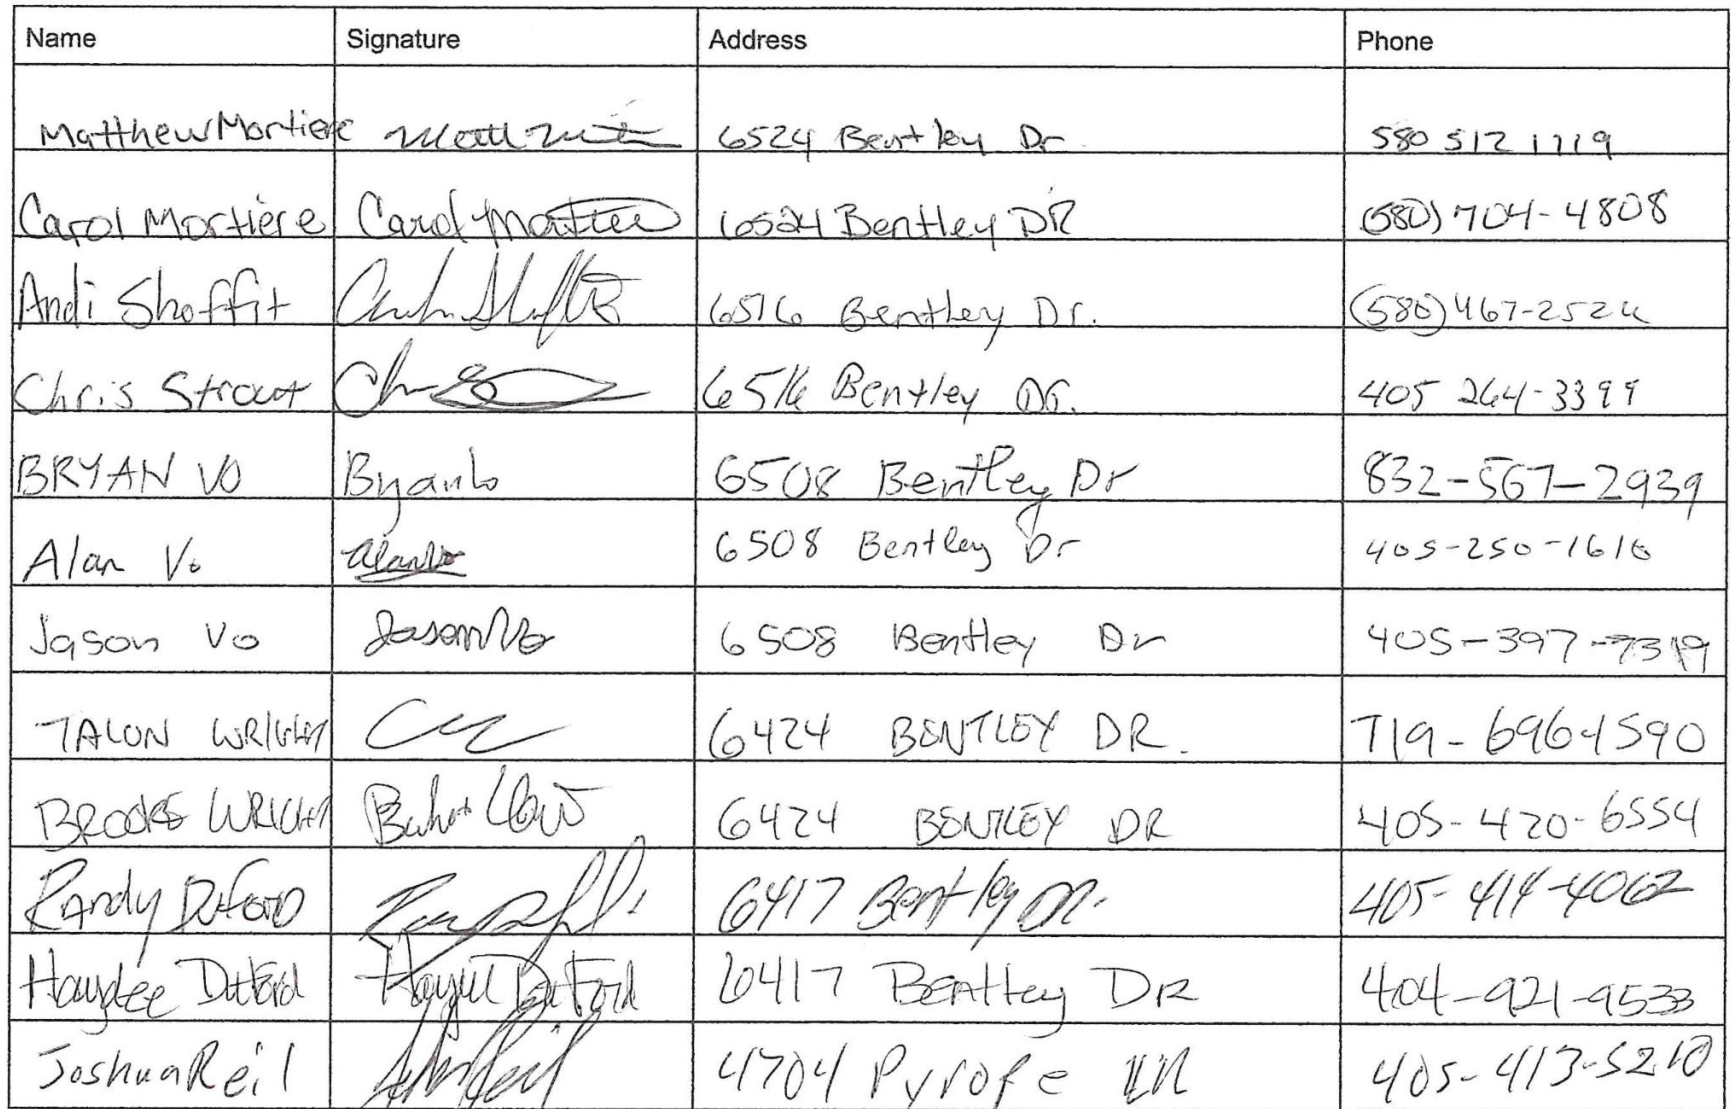 Name Signature Address Phone
Matthew Mortiere 6524 Bentley Dr 580 512 1119
Carol Mortiere Carol Mortiere 6524 Bentley DR (580) 704-4808
Andi Shoffit 6516 Bentley Dr. (580) 467-2524
Chris Strout 6516 Bentley Dr. 405 264-3399
BRYAN VO Bryan Vo 6508 Bentley Dr 832-567-2939
Alan Vo Alan Vo 6508 Bentley Dr 405-250-1616
Jason Vo Jason Vo 6508 Bentley Dr 405-397-7319
TALON WRIGHT 6424 BENTLEY DR. 719-696-1590
BROOKE WRIGHT 6424 BENTLEY DR 405-420-6554
Randy Duford 6417 Bentley Dr. 405-414-4062
Haydee Duford Haydee Duford 6417 Bentley DR 404-921-9533
Joshua Reil 4704 Pyrope LN 405-413-5210